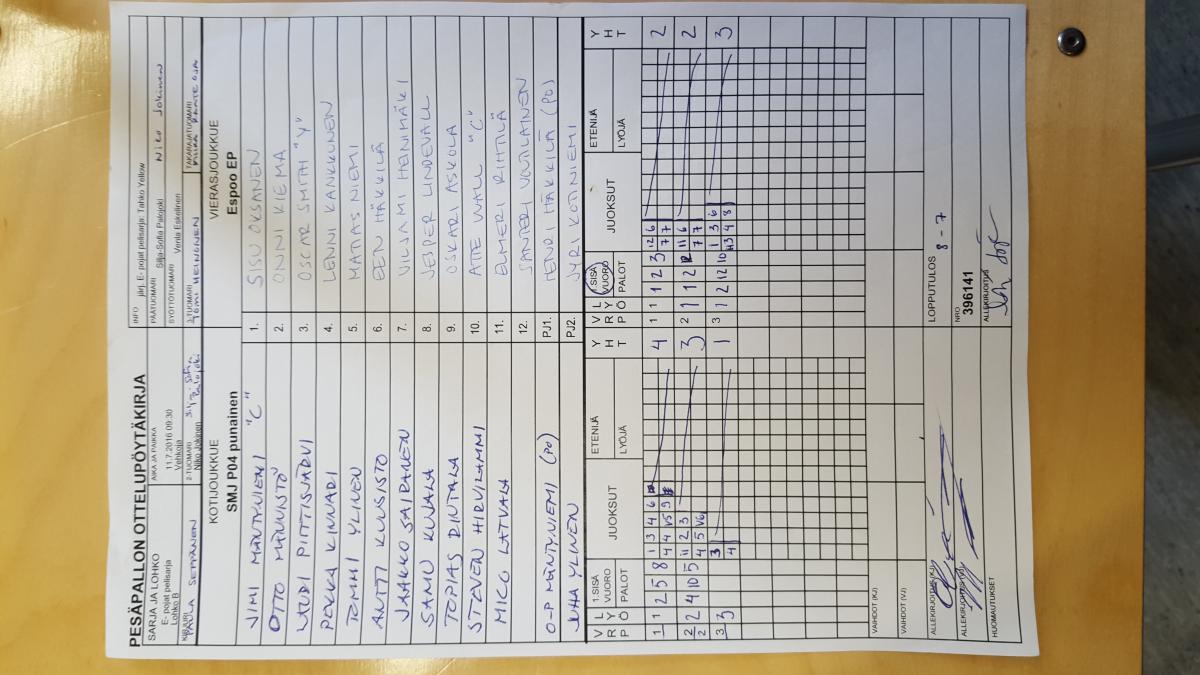 PESÄPALLON OTTELUPÖYTÄKIRJA
INFO järj. E- pojat pelisarja: Tahko Yellow
SARJA JA LOHKO
E- pojat pelisarja
Lohko B
AIKA JA PAIKKA
11.7.2016 09:30
Vehkoja
PÄÄTUOMARI
Silja-Sofia Palojoki Niko Jokinen
SYÖTTÖTUOMARI
Venla Eskelinen
KIRJURI
PAULA SEPPÄNEN
2-TUOMARI
Niko Jokinen Silja-Sofia Palojoki
3-TUOMARI
TOMI HEINONEN
TAKARAJATUOMARI
KOTIJOUKKUE
SMJ P04 punainen
VIERASJOUKKUE
Espoo EP
JIMI MÄNTYNIEMI "C" 1. SISU OKSANEN
OTTO MÄNNISTÖ 2. ONNI KIEMA
LAURI PITTISJÄRVI 3. OSCAR SMITH "Y"
PEKKA KINNARI 4. LENNI KANKKUNEN
TOMMI YLINEN 5. MATIAS NIEMI
ANTTI KUUSISTO 6. EEN HÄKKILÄ
JAAKKO SAIPANEN 7. VILJAMI HEINIMÄKI
SAMU KUJALA 8. JESPER LINDEVALL
TOPIAS RINTALA 9. OSKARI ASKOLA
STEVEN HIRVILAMMI 10. ATTE WALL "C"
MICO LATVALA 11. ELMERI RIHTILÄ
12. SANTERI VOTILAINEN
O-P MÄNTYNIEMI (PO) PJ1. HENRI HÄKKILÄ (PO)
JUHA YLINEN PJ2. JYRI KOTINIEMI
V P R Y L Ö 1.SISÄ VUORO PALOT JUOKSUT ETENIJÄ LYÖJÄ Y H T V P R Y L Ö SISÄ VUORO PALOT JUOKSUT ETENIJÄ LYÖJÄ Y H T
1 1 2 5 8 1 3 4 6 4 1 1 1 2 3 12 6 2
1 4 4 V5 9 7 7
2 2 4 10 5 11 2 3 3 2 1 1 2 11 6 2
2 4 5 V6 7 7
3 3 3 1 3 1 2 12 10 1 3 6 3
3 4 H3 4 8
VAIHDOT (KJ)
VAIHDOT (VJ)
ALLEKIRJOITUS (KJ)
LOPPUTULOS 8 - 7
ALLEKIRJOITUS (VJ)
NRO
396141
HUOMAUTUKSET
ALLEKIRJOITUS